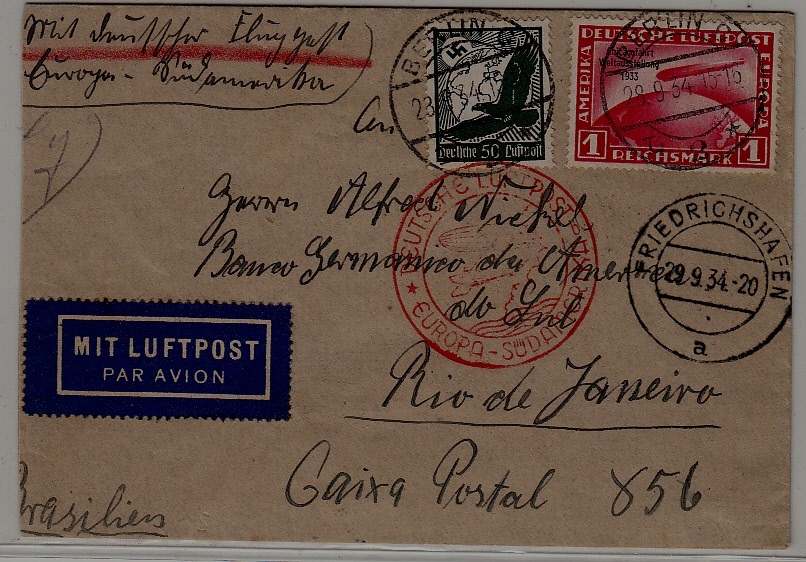 Mit deutscher Flugpost
Europa - Südamerika
An
BERLIN
23
50 Luftpost
DEUTSCHE LUFTPOST
AMERIKA
EUROPA
Chicagofahrt
Weltausstellung
1933
1 REICHSMARK 1
BERLIN
28.9.34.15-16
Herrn Alfred
Banco Germanico da America
do Sul
DEUTSCHE LUFTPOST
EUROPA - SÜDAMERIKA
FRIEDRICHSHAFEN
29.9.34.-20
a
MIT LUFTPOST
PAR AVION
Rio de Janeiro
Caixa Postal 856
Brasilien